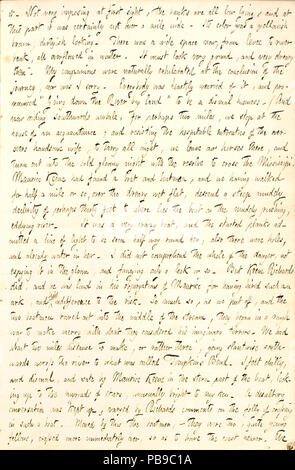 it. Not very imposing at first sight, the banks are all low lying, and at
this part it was certainly not over a mile wide. Its color was a yellowish
brown, dirtyish looking. There was a wide space very from levee to river
bank, all overflowed in winter. It must look very grand, and very dreary
then. My companions were naturally exhilarated at the conclusion of the
journey, nor was I sorry. Everybody was heartily wearied of it, and pro-
nounced "going down the River by land" to be a dismal
now riding Southwards awhile. For perhaps two miles, we stop at the
house of an acquaintance; and resisting the hospitable entreaties of the
overseers handsome wife, to tarry all night, we leave our horses there, and
turn out into the cold gloomy night with the resolve to cross the Mississippi.
Maurice Keene had found a boat and boatmen, and so having walked
for half a mile or so, over the dreary wet flat, descend a steep muddy
declivity of perhaps thirty feet to where lies the boat in the muddy rushing,
eddying river. It was a very crazy boat, and the started planks ad-
mitted a line of light to be seen half way round her, also there were holes,
and already water in her. I did not comprehend the whole of the danger, not
espying it in the gloom and fancying only a leak or so. But Keene Richards
did, and he was loud in his of Maurice for having hired such an
ark, and difference to the risk. So much so, as we put off, and the
two boatmen rowed out into the middle of the stream, they were in a rough
way to make merry with what they considered his imaginary terrors. We had
about two miles distance to make, or rather three, going slantwise south-
wards across the river to what was called Tompkins Bend. I felt chilly,
and dismal, and sate by Maurice Keene in the stern part of the boat, look-
ing up to the myriads of stars, unusually bright to my ken. A desultory
conversation was kept up, varied by Richards comments on the folly of risking
in such a boat. Moved by this the boatmen, they were two, quite young
fellows, rigged more immoderately now, so as to have the rest never. The